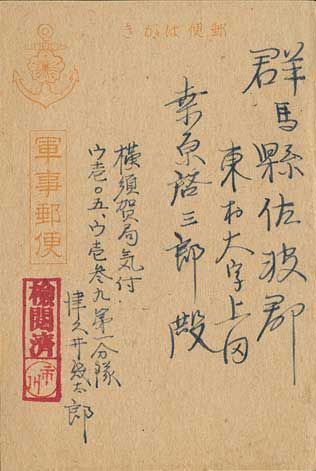 郵便はがき
群馬縣佐波郡
東村大字上田
桒原啓三郎殿
軍事郵便
横須賀局気付
ウ壱〇五、ウ壱参九第一分隊
津久井 太郎
検閲済
市川